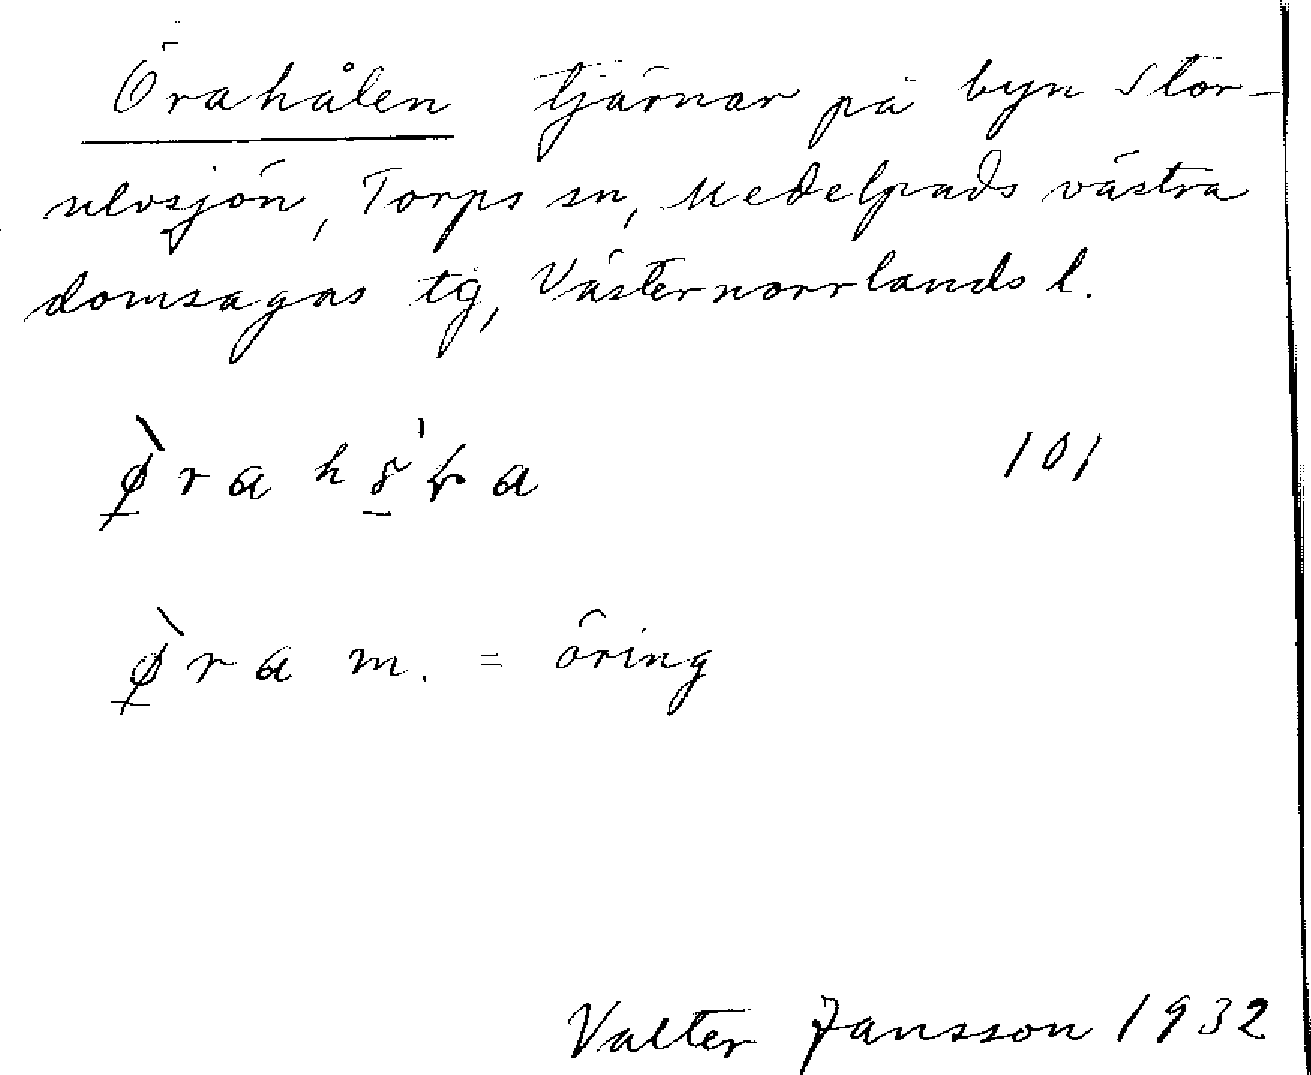 Örahålen tjärnar på byn Stor-
ulvsjön, Torps sn, Medelpads västra
domsagas tg, Västernorrlands l.
ø̠̀ra
101
ø̠̀ra m. = öring
Valter Jansson 1932